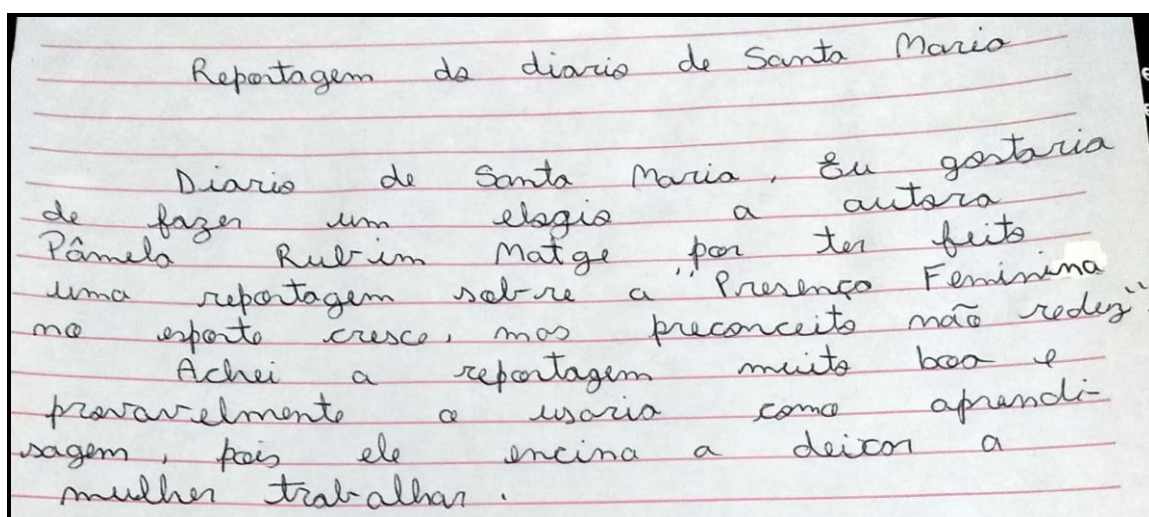 Reportagem do diario de Santa Maria
Diario de Santa Maria, Eu gostaria
de fazer um elogio a autora
Pâmela Rubim Matge por ter feito
uma reportagem sobre a "Presença Feminina
no esporte cresce, mas preconceito não redez".
Achei a reportagem muito boa e
provavelmente a usaria como aprendi-
sagem, pois ele encina a deixar a
mulher trabalhar.